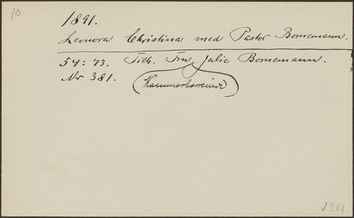 10
1891.
Leonora Christina med Pastor Bornemann.
54:73. Tilh. Fru Julie Bornemann.
Nr 381.
(Kammerherreinde)